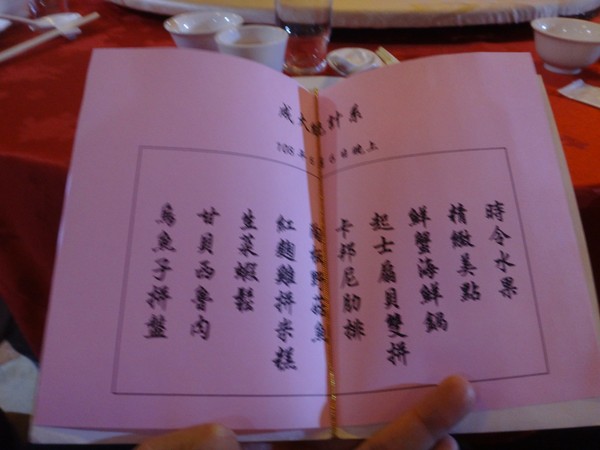 成大統計系
108年 月6日晚上
烏魚子拼盤
甘貝西魯肉
生菜蝦鬆
紅麴雞拼米糕
板野菇魚
卡邦尼肋排
起士扇貝雙拼
鮮蟹海鮮鍋
精緻美點
時令水果